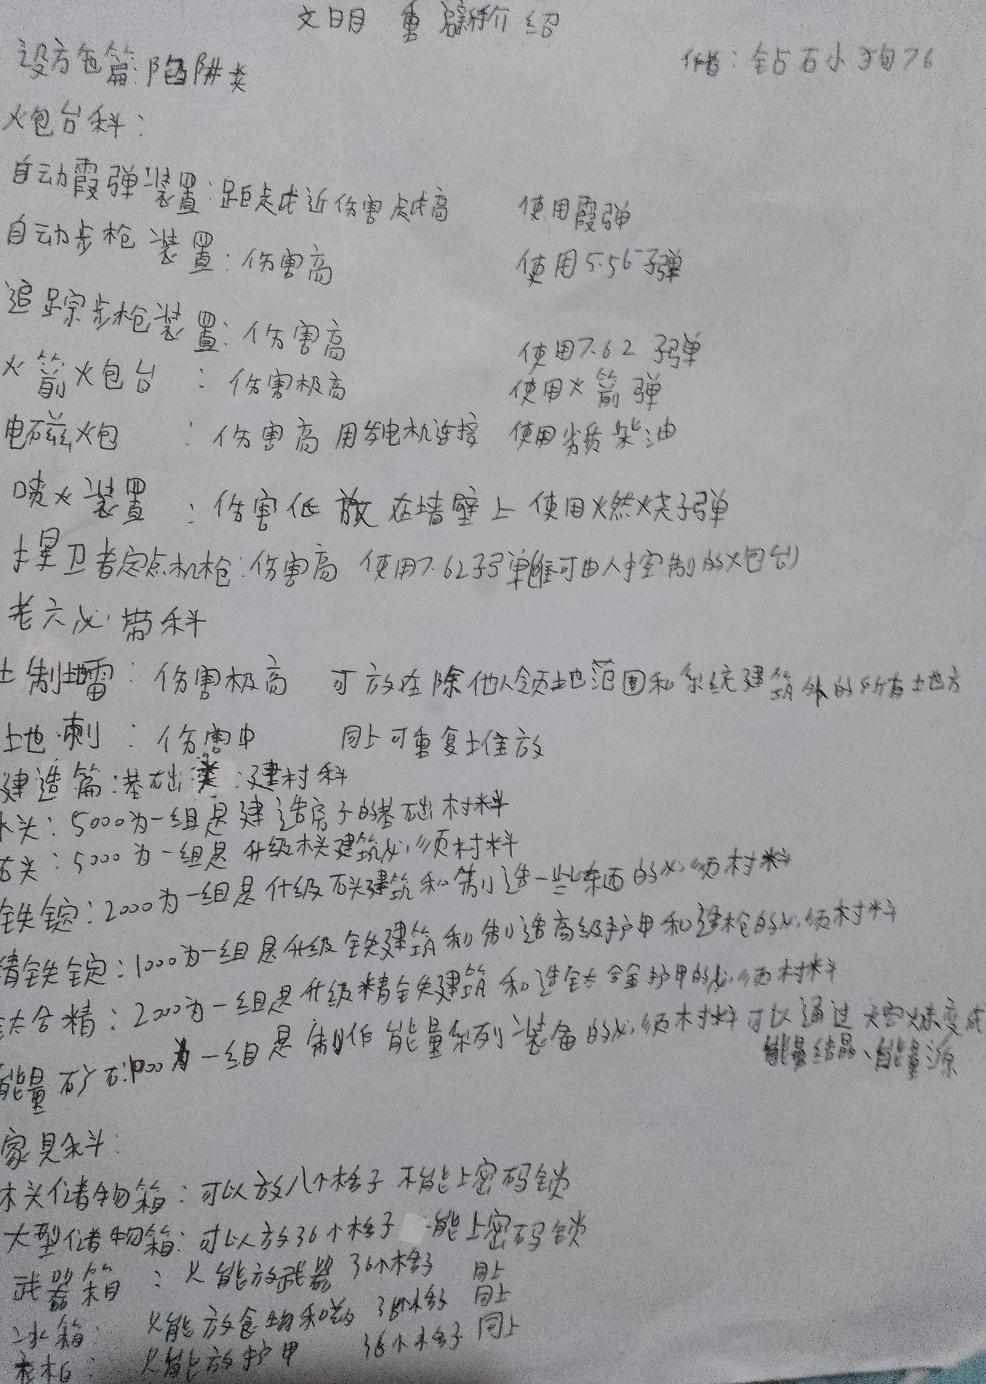 文明重启新介绍
作者：钻石小狗76
设方包篇：陷阱类
炮台科：
自动霞弹装置：距离越近伤害越高 使用霞弹
自动步枪装置：伤害高 使用5.56子弹
追踪步枪装置：伤害高 使用7.62子弹
火箭炮台：伤害极高 使用火箭弹
电磁炮：伤害高 用发电机连接 使用劣质柴油
喷火装置：伤害低 放在墙壁上 使用燃烧子弹
捍卫者定点机枪：伤害高 使用7.62子弹(唯可由人控制的炮台)
老六必带科
土制地雷：伤害极高 可放在除他人领地范围和系统建筑外的所有地方
地刺：伤害中 同上可重复堆放
建造篇：基础类：建材科
木头：5000为一组是建造房子的基础材料
石头：5000为一组是升级木头建筑必须材料
铁锭：2000为一组是升级石头建筑和制造一些东西的必须材料
精铁锭：1000为一组是升级铁建筑和制造高级护甲和造枪的必须材料
钛合精：2000为一组是升级精铁建筑和造钛合金护甲的必须材料
能量矿石：1000为一组是制作能量系列装备的必须材料可以通过熔炼变成能量结晶、能量源
家具科：
木头储物箱：可以放八个格子 不能上密码锁
大型储物箱：可以放36个格子 能上密码锁
武器箱：只能放武器 36个格子 同上
冰箱：只能放食物和药 36个格子 同上
衣柜：只能放护甲 36个格子 同上